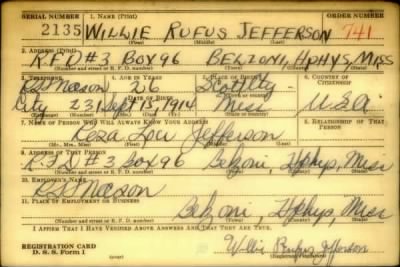 SERIAL NUMBER 1. NAME (Print) ORDER NUMBER
2135 WILLIE RUFUS JEFFERSON 741
(First) (Middle) (Last)
2. ADDRESS (Print)
R.F.D #3 BOX 96 BELZONI, HPHYS, MISS
(Number and street or R. F. D. number) (Town) (County) (State)
3. TELEPHONE 4. AGE IN YEARS 5. PLACE OF BIRTH 6. COUNTRY OF CITIZENSHIP
26
DATE OF BIRTH
City 23 Sept 15, 1914 Miss U.S.A.
7. NAME OF PERSON WHO WILL ALWAYS KNOW YOUR ADDRESS 8. RELATIONSHIP OF THAT PERSON
Lou Jefferson
(Mr., Mrs., Miss) (First) (Middle) (Last)
9. ADDRESS OF THAT PERSON
R.F.D #3 Box 96 Belzoni, Hphys, Miss
(Number and street or R. F. D. number) (Town) (County) (State)
10. EMPLOYER'S NAME
11. PLACE OF EMPLOYMENT OR BUSINESS
Belzoni, Hphys, Miss
(Number and street or R. F. D. number) (Town) (County) (State)
I AFFIRM THAT I HAVE VERIFIED ABOVE ANSWERS AND THAT THEY ARE TRUE.
REGISTRATION CARD
D. S. S. Form 1
Willie Rufus Jefferson